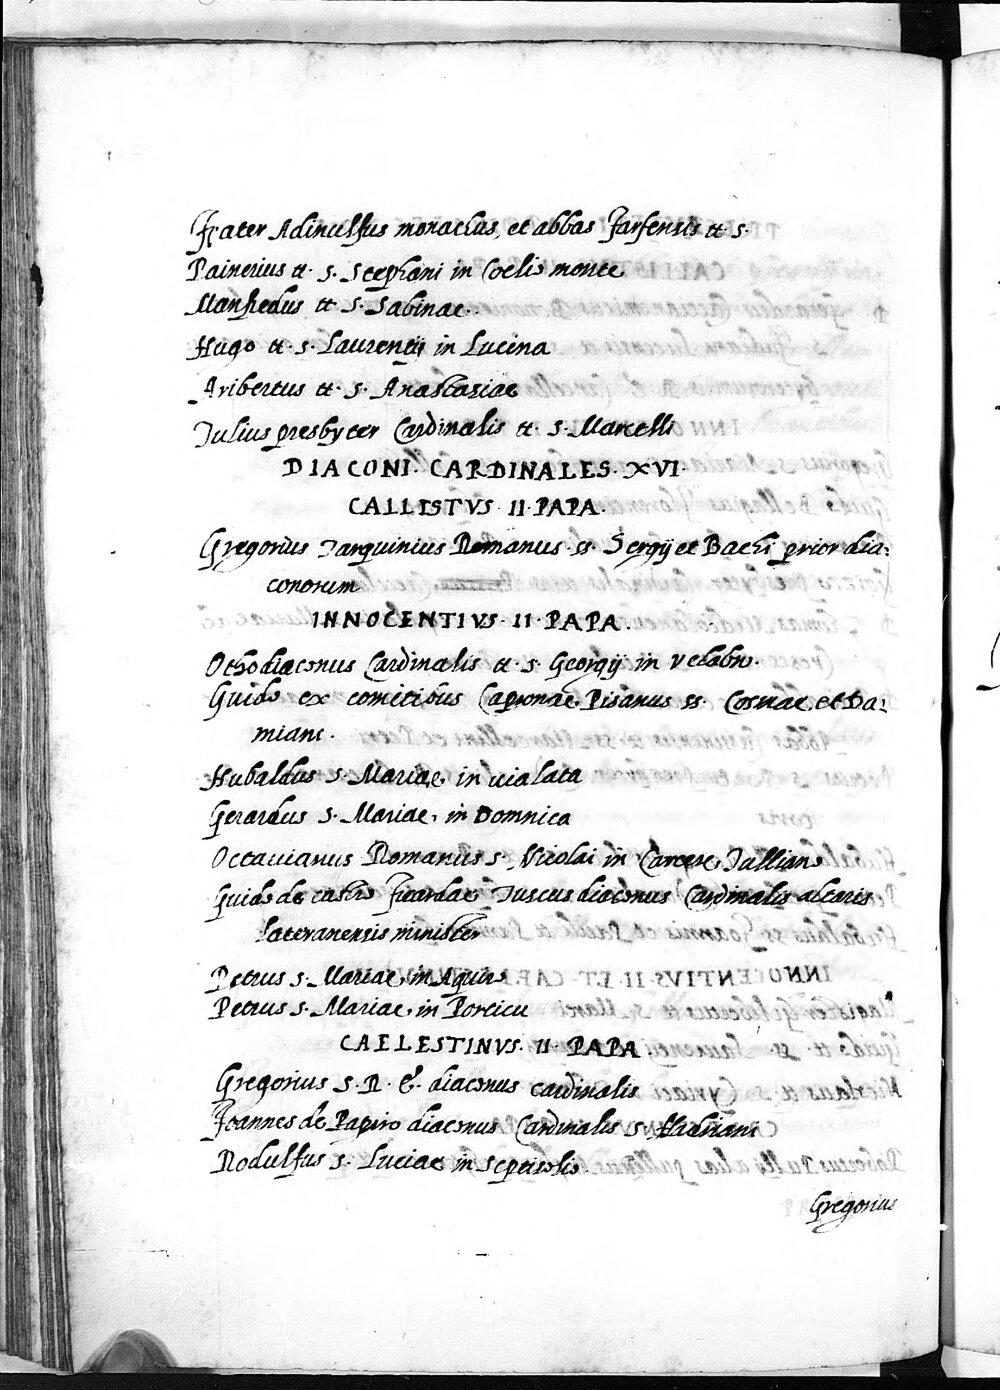 Frater Adinulfus monachus, et abbas Farfensis tt. s.
Rainerius tt. s. Stephani in Coelio monte
Manfredus tt. s. Sabinae.
Hugo tt. s. Laurentij in Lucina
Aribertus tt. s. Anastasiae
Iulius presbyter Cardinalis tt. s. Marcelli
DIACONI. CARDINALES. XVI.
CALLISTVS. II. PAPA.
Gregorius Tarquinius Romanus. ss. Sergij et Bachi prior dia:
conorum
INNOCENTIVS. II. PAPA.
Otho diaconus Cardinalis tt. s. Georgij in Velabro.
Guido ex comitibus Capronae Pisanus ss. Cosmae, et Da:
miani.
Hubaldus s. Mariae, in uia lata
Gerardus s. Mariae, in Domnica
Octauianus Romanus s. Nicolai in Carcere, Tulliano
Guido de castro Ficardae Tuscus diaconus Cardinalis altaris
Lateranensis minister
Petrus s. Mariae, in Aquiro
Petrus s. Mariae, in Porticu
CAELESTINVS. II. PAPA.
Gregorius S. R. E. diaconus cardinalis
Joannes de Papiro diaconus Cardinalis s. Hadriani
Rodulfus s. Luciae in septisolio
Gregorius